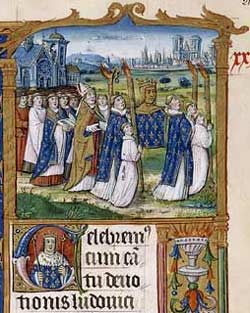 Celebremꝰ
cum cā
tu deuo
tionis ludouici